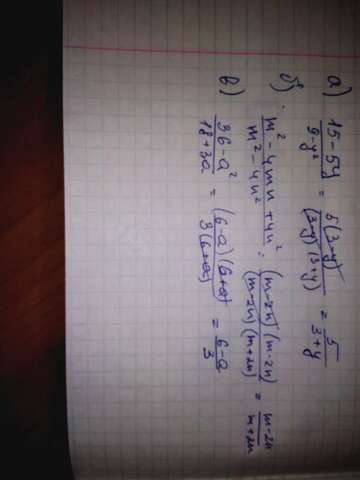 а) (15-5y)/(9-y²) = (5(3-y))/((3-y)(3+y)) = 5/(3+y)
б) (m²-4mn+4n²)/(m²-4n²) = ((m-2n)(m-2n))/((m-2n)(m+2n)) = (m-2n)/(m+2n)
в) (36-a²)/(18+3a) = ((6-a)(6+a))/(3(6+a)) = (6-a)/3